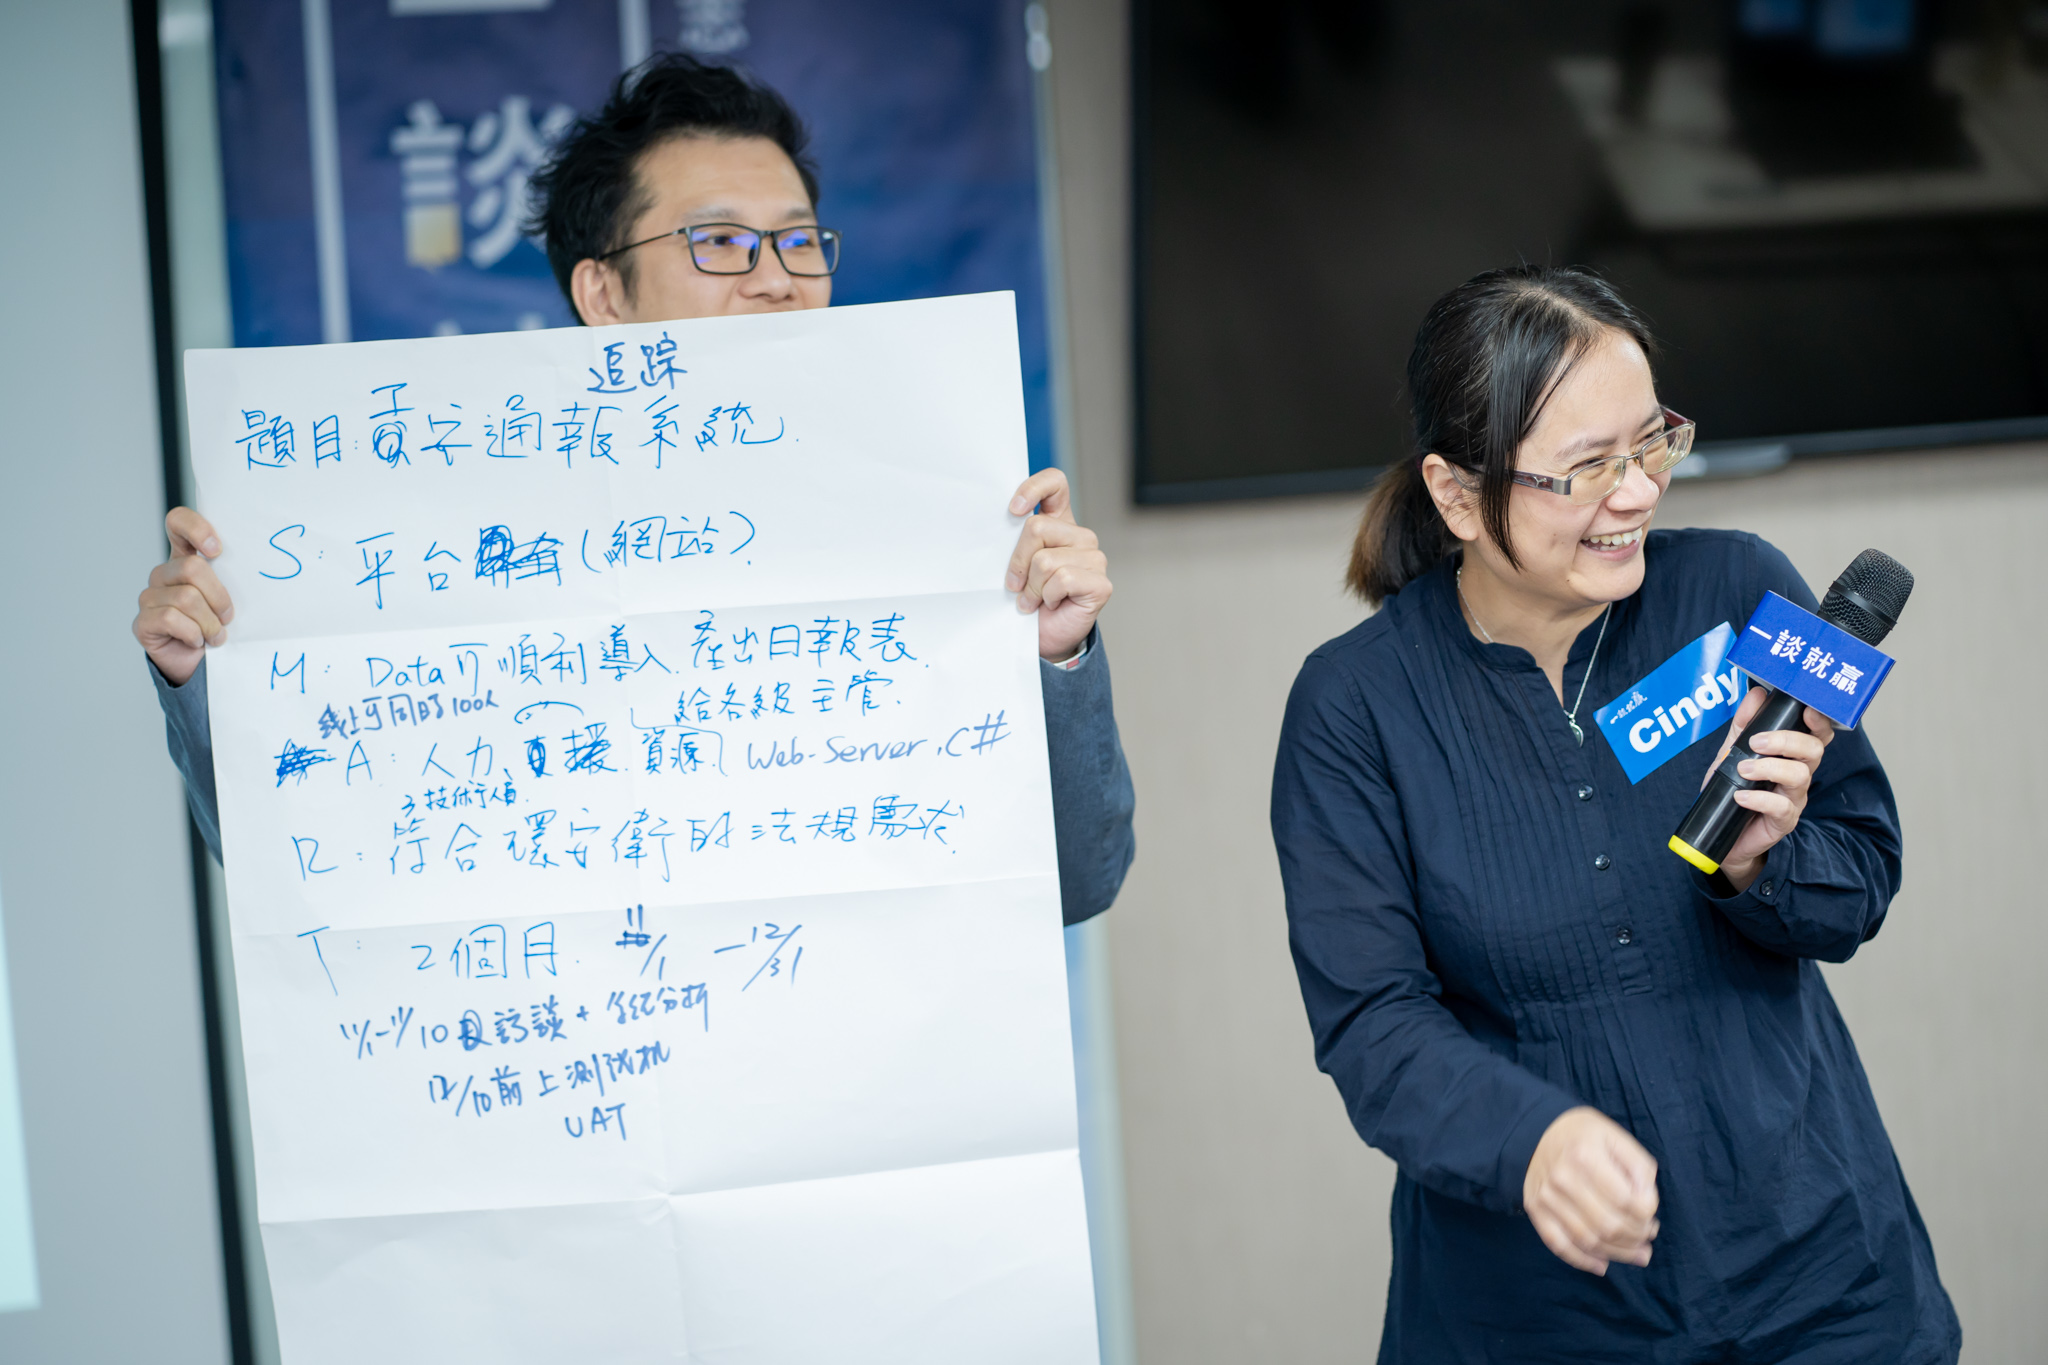 談
追踪
題目:工安通報系統.
S: 平台(網站).
M: Data可順利導入.產出日報表.
線上可同時100人
給各級主管.
A: 人力、支援.資源. Web-Server.C#
3技術人員.
R: 符合環安衛的法規需求.
T: 2個月. 11/1 — 12/31
11/1-11/10 訪談+系統分析
12/10前上測試機
UAT
一談就贏
Cindy